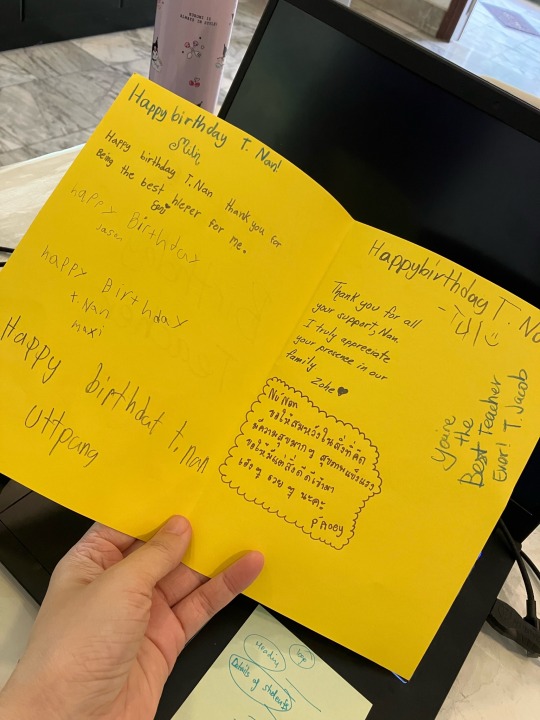 Happy birthday T. Nan!
Miln
Happy birthday T.Nan thank you for
Being the best hleper for me.
happy Birthday
Jasai
happy Birthday
t.Nan
maxi
Happy birthdat t.nan
Uttpang
Happybirthday T.
Thank you for all
your support, Nan.
I truly appreciate
your presence in our
family
Zohe
You're
the
Best Teacher
Ever! T. Jacob
Nu'Nan
ขอให้สมหวังในสิ่งที่คิด
มีความสุขมากๆ สุขภาพแข็งแรง
ขอให้มีแต่สิ่งดีดีเข้ามา
เฮงๆ รวย ๆ นะคะ
Heading
Details of students